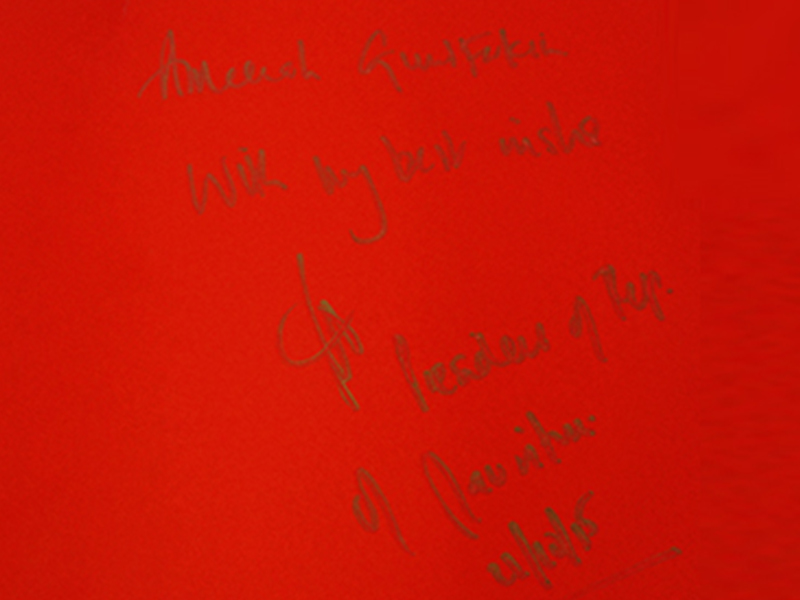 Ameenah Gurib-Fakim
With my best wishes
President of Rep.
of Mauritius